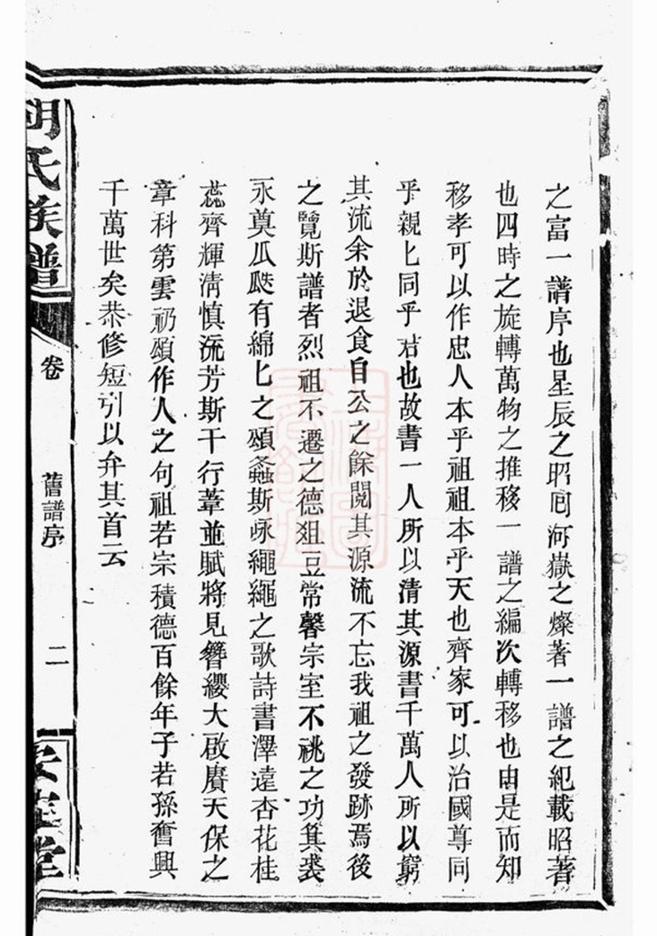 之富一譜序也星辰之昭囘河嶽之燦著一譜之紀載昭著
也四時之旋轉萬物之推移一譜之編次轉移也由是而知
移孝可以作忠人本乎祖祖本乎天也齊家可以治國尊同
乎親匕同乎君也故書一人所以清其源書千萬人所以窮
其流余於退食自公之餘閱其源流不忘我祖之發跡焉後
之覽斯譜者烈祖不遷之德俎豆常馨宗室不祧之功箕裘
永奠瓜瓞有綿匕之頌螽斯咏繩繩之歌詩書澤遠杏花桂
蕊齊輝清慎流芳斯干行葦並賦將見簪纓大啟賡天保之
章科第雲礽頌作人之句祖若宗積德百餘年子若孫奮興
千萬世矣恭修短引以弁其首云
胡氏族譜
卷
舊譜序
二
安定堂